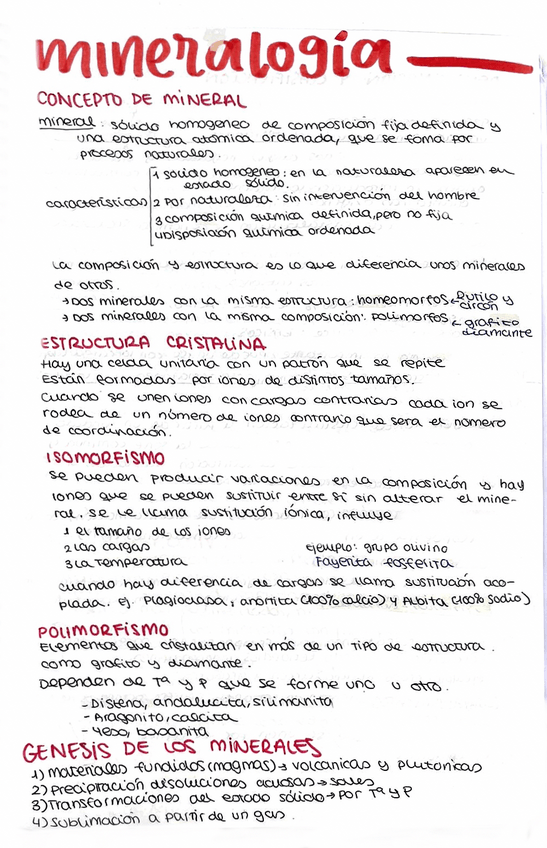 mineralogía
CONCEPTO DE MINERAL
mineral: sólido homogeneo de composición fija definida y
una estructura atómica ordenada, que se foma por
procesos naturales.
1 solido homogeneo: en la naturaleza aparecen en
estado sólido.
características 2 Por naturaleza: sin intervención del hombre
3 composición química definida, pero no fija
4 Disposición química ordenada
La composición y estructura es lo que diferencia unos minerales
de otros.
→ Dos minerales con la misma estructura: homeomorfos ← Rutilo y
circón
→ Dos minerales con la misma composición: polimorfos ← grafito
diamante
ESTRUCTURA CRISTALINA
Hay una celda unitaria con un patrón que se repite
Están formadas por iones de distintos tamaños.
Cuando se unen iones con cargas contrarias cada ion se
rodea de un número de iones contrario que sera el número
de coordinación.
ISOMORFISMO
se pueden producir variaciones en la composición y hay
iones que se pueden sustituir entre sí sin alterar el mine-
ral. se le llama sustitución iónica, influye
1 el tamaño de los iones
2 Las cargas ejemplo: grupo olivino
3 La temperatura Fayerita fosferita
cuando hay diferencia de cargas se llama sustitución aco-
plada. Ej. Plagioclasa; anortita (100% calcio) y Albita (100% sodio)
POLIMORFISMO
Elementos que cristalitan en más de un tipo de estructura.
como grafito y diamante.
Dependen de Tª y P que se forme uno u otro.
- Distena, andalucita, silimanita
- Aragonito, calcita
- Yeso, basanita
GENESIS DE LOS MINERALES
1) materiales fundidos (magmas) → volcanicas y plutonicas
2) Precipitación disoluciones acuosas → sales
3) Transformaciones del estado sólido → por Tª y P
4) Sublimación a partir de un gas.